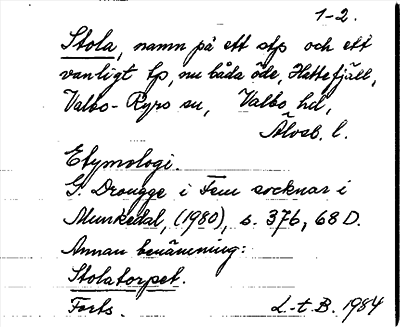 1-2.
Stola, namn på ett stp och ett
vanligt tp, nu båda öde, Hattefjäll,
Valbo-Ryrs sn, Valbo hd,
Älvsb. l.
Etymologi.
G. Drougge i Fem socknar i
Munkedal, (1980), s. 376, 68 D.
Annan benämning:
Stolatorpet.
Forts. L.-t. B. 1984